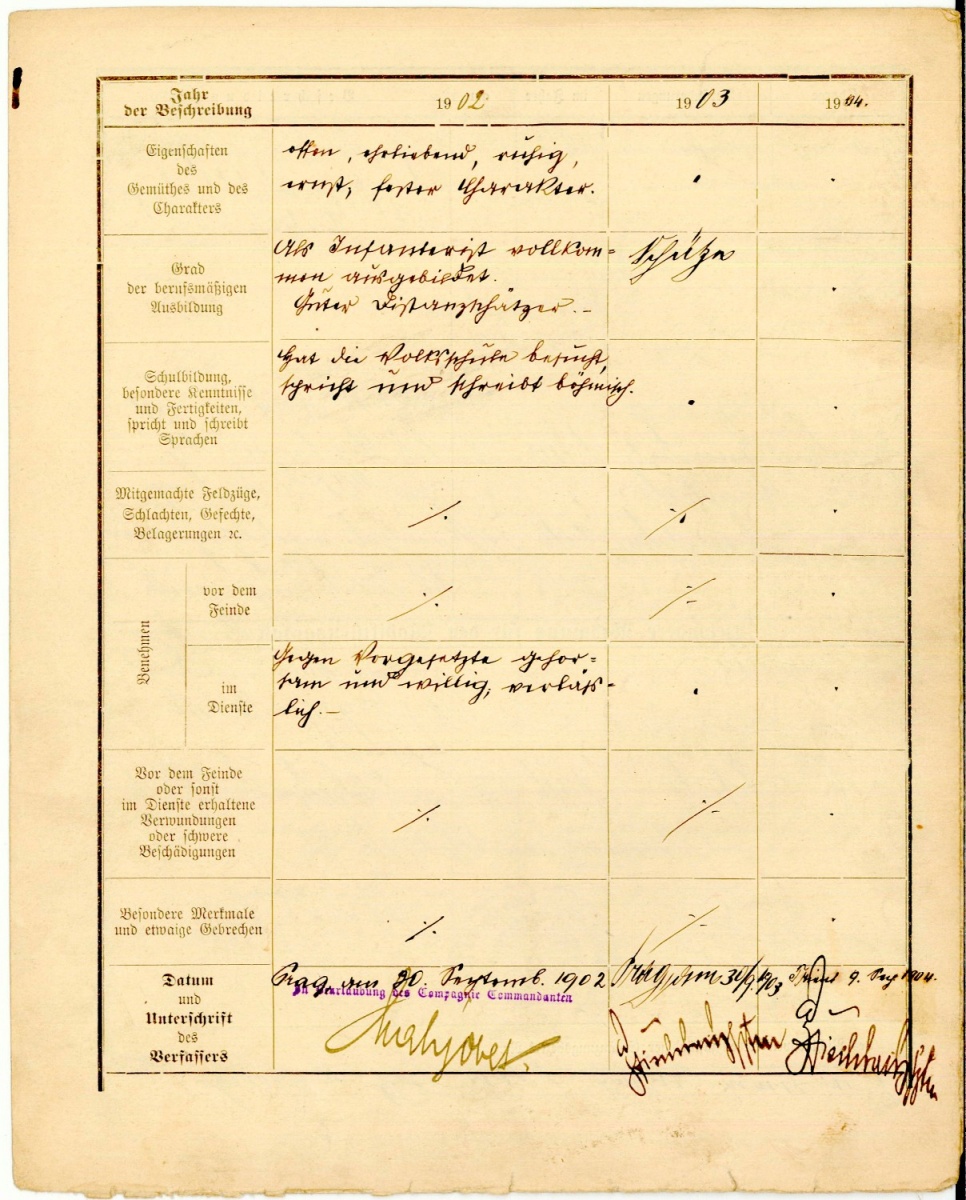 Jahr
der Beschreibung
1902
1903
1904.
Eigenschaften
des
Gemüthes und des
Charakters
offen, ehrliebend, ruhig,
ernst, fester Charakter.
Grad
der berufsmäßigen
Ausbildung
Als Infanterist vollkom-
men ausgebildet.
Guter Distanzschätzer. –
Schütze
Schulbildung,
besondere Kenntnisse
und Fertigkeiten,
spricht und schreibt
Sprachen
Hat die Volksschule besucht,
spricht und schreibt böhmisch.
Mitgemachte Feldzüge,
Schlachten, Gefechte,
Belagerungen ꝛc.
⁒
⁒
Benehmen
vor dem
Feinde
⁒
⁒
im
Dienste
Gegen Vorgesetzte gehor-
sam und willig, verläss-
lich. –
Vor dem Feinde
oder sonst
im Dienste erhaltene
Verwundungen
oder schwere
Beschädigungen
⁒
⁒
Besondere Merkmale
und etwaige Gebrechen
⁒
⁒
Datum
und
Unterschrift
des
Verfassers
Prag, am 30. Septemb. 1902
In Beurlaubung des Compagnie Commandanten
Prag, am 30/9 1903
9. Sep 1904.